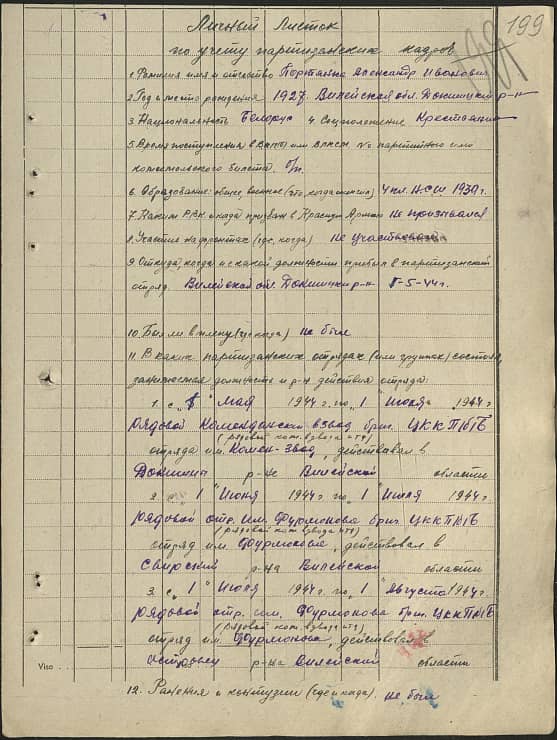 199
Личный Листок
по учету партизанских кадров
1. Фамилия имя и отчество Портянко Александр Иванович
2. Год и место рождения 1927. Вилейская обл. Докшицки р-н
3. Национальность Белорус 4. Соцположение Крестьянин
5. Время поступления в ВКП(б) или ВЛКСМ № партийного или
комсомольского билета. б/п.
6. Образование: общее, военное (что, когда окончил) 4 кл. НСШ 1939 г.
7. Каким РВК и когда призван в Красную Армию не призывался
8. Участие на фронтах (где, когда) не участвовал
9. Откуда, когда и с какой должности прибыл в партизанский
отряд. Вилейской обл. Докшицки р-н 1-5-44 г.
10. Был ли в плену (где, когда) не был
11. В каких партизанских отрядах (или группах) состоял,
занимаемая должность и р-н действия отряда:
1. с "1" мая 1944 г. по "1" Июня 1944 г.
рядовой Комендански взвод бриг. ЦККП(б)Б
(рядовой, ком. взвода и тд)
отряда им. Комен-звод, действовал в
Докшицы р-на Вилейской области
2. с "1" Июня 1944 г. по "1" Июля 1944 г.
рядовой отр. им. Фурмонова бриг. ЦККП(б)Б
(рядовой, ком. взвода и тд)
отряд им. Фурмонова, действовал в
Свирский р-на Вилейской области
3. с "1" Июля 1944 г. по "1" Августа 1944 г.
рядовой отр. им. Фурмонова бриг. ЦККП(б)Б
(рядовой, ком. взвода и тд)
отряд им. Фурмонова, действовал в
р-на Вилейский области
Viso
12. Ранения и контузии (где и когда). не был